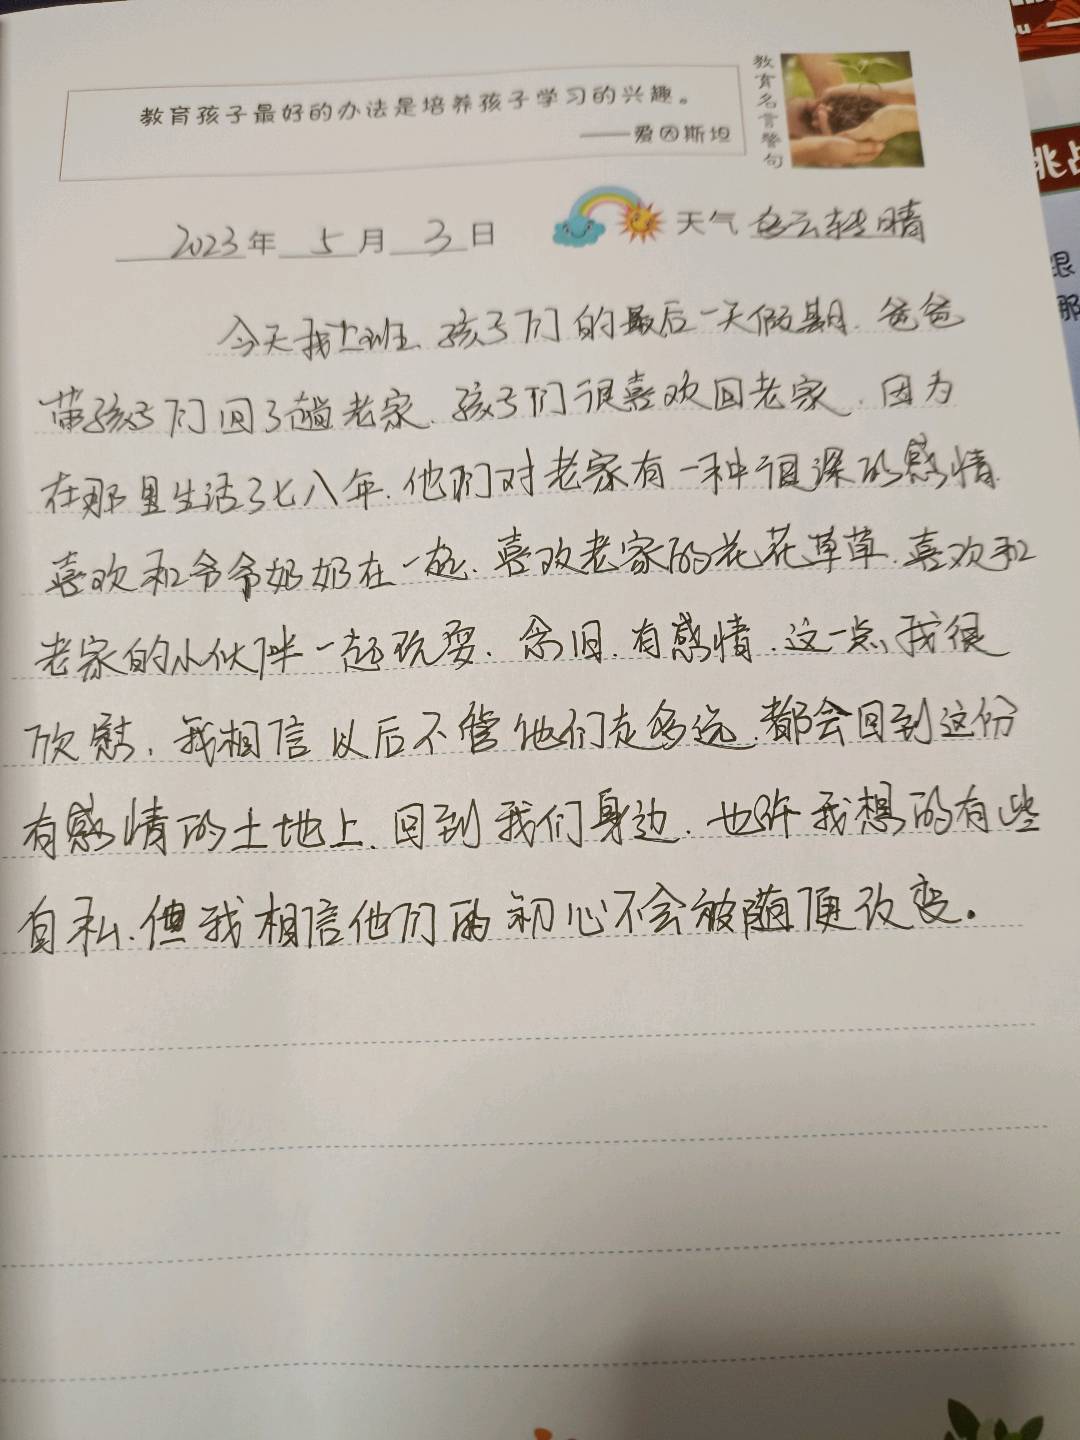 教育孩子最好的办法是培养孩子学习的兴趣。
——爱因斯坦
教育名言警句
2023年 5月 3日 天气 多云转晴
今天我上班、孩子们的最后一天假期.爸爸
带孩子们回了趟老家.孩子们很喜欢回老家.因为
在那里生活了七八年.他们对老家有一种很深的感情.
喜欢和爷爷奶奶在一起、喜欢老家的花花草草.喜欢和
老家的小伙伴一起玩耍.念旧.有感情.这一点我很
欣慰.我相信以后不管他们走多远.都会回到这份
有感情的土地上.回到我们身边.也许我想的有些
自私.但我相信他们的初心不会被随便改变.
挑战
跟
那